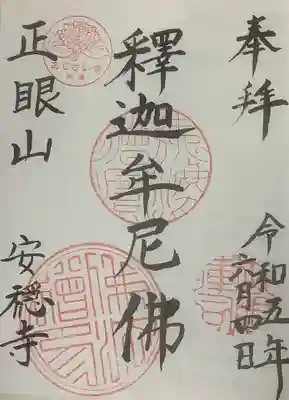 奉拝
令和五年
六月四日
釋迦牟尼佛
正眼山
安穏寺
あじさい寺